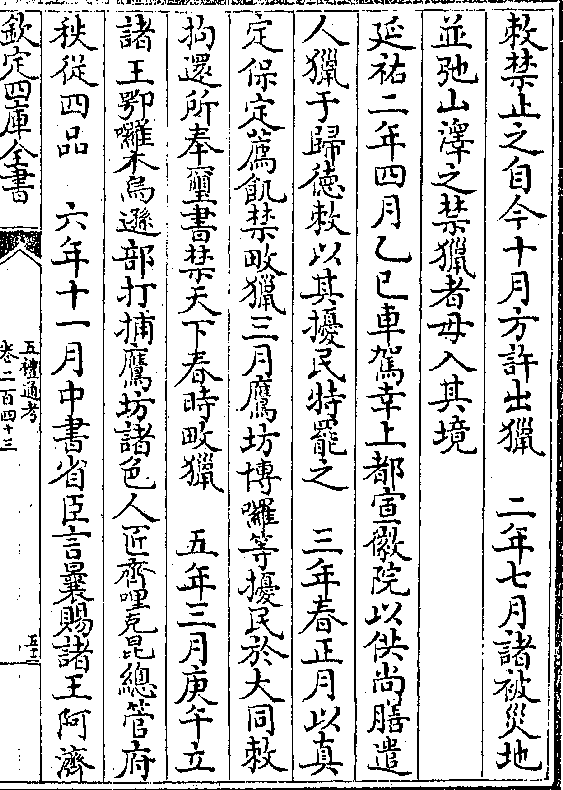 敕禁止之自今十月方許出獵　二年七月諸被災地
並弛山澤之禁獵者毋入其境
延祐二年四月乙巳車駕幸上都宣徽院以供尚膳遣
人獵于歸德敕以其擾民特罷之　三年春正月以真
定保定薦飢禁畋獵三月鷹坊博囉等擾民於大同敕
拘還所奉璽書禁天下春時畋獵　五年三月庚午立
諸王鄂囉木烏遜部打捕鷹坊諸色人匠齊哩克昆總管府
秩從四品　六年十一月中書省臣言曩賜諸王阿濟
欽定四庫全書
五禮通考
卷二百四十三
五十三